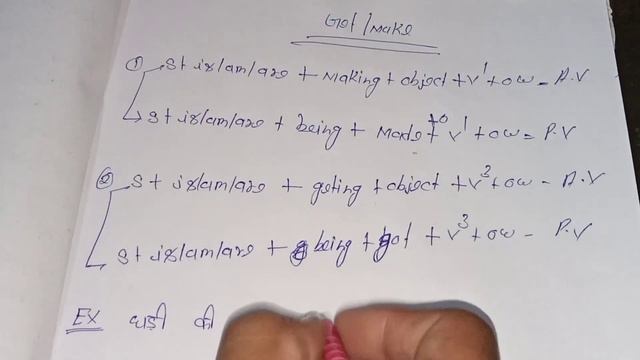 Get / Make
① S + is/am/are + Making + object + V¹ + ow - A.V
S + is/am/are + being + Made + to V¹ + ow = P.V
② S + is/am/are + geting + object + V³ + ow - A.V
S + is/am/are + being + got + V³ + ow - P.V
EX घड़ी की